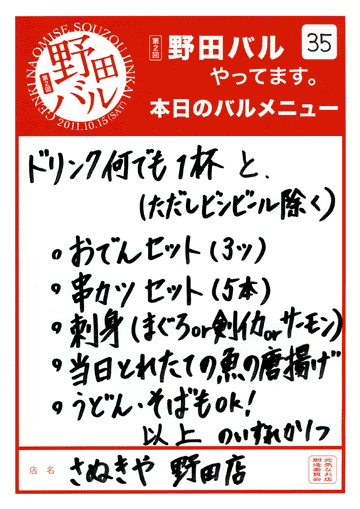 第2回 野田バル 35
やってます。
本日のバルメニュー
GENKI NA OMISE SOUZOU IINKAI
第2回
野田
バル
2011.10.15(SAT)
ドリンク何でも1杯 と、
(ただしビンビール除く)
・おでんセット(3ツ)
・串カツ セット(5本)
・刺身(まぐろor剣イカorサーモン)
・当日とれたての魚の唐揚げ
・うどん・そばもOK!
以上 のいずれか1つ
店名 さぬきや 野田店
元気なお店
創造委員会